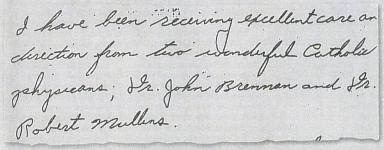 I have been receiving excellent care an
direction from two wonderful Catholic
physicans; Dr. John Brennan and Dr.
Robert Mullins.